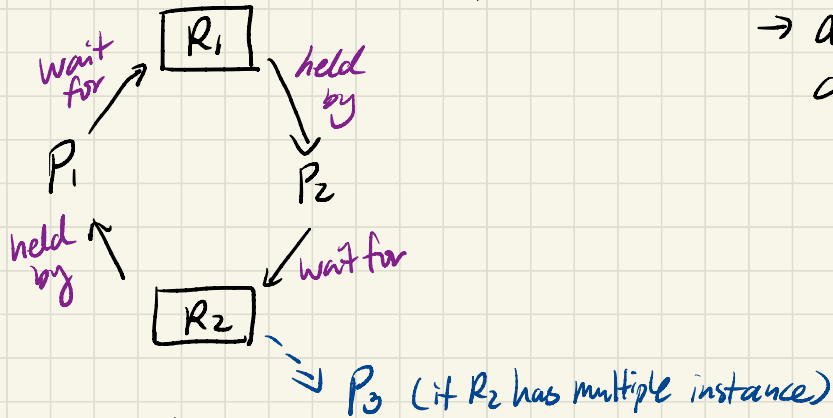 R₁
wait for
held by
→
P₁
P₂
held by
wait for
R₂
P₃ (if R₂ has multiple instance)